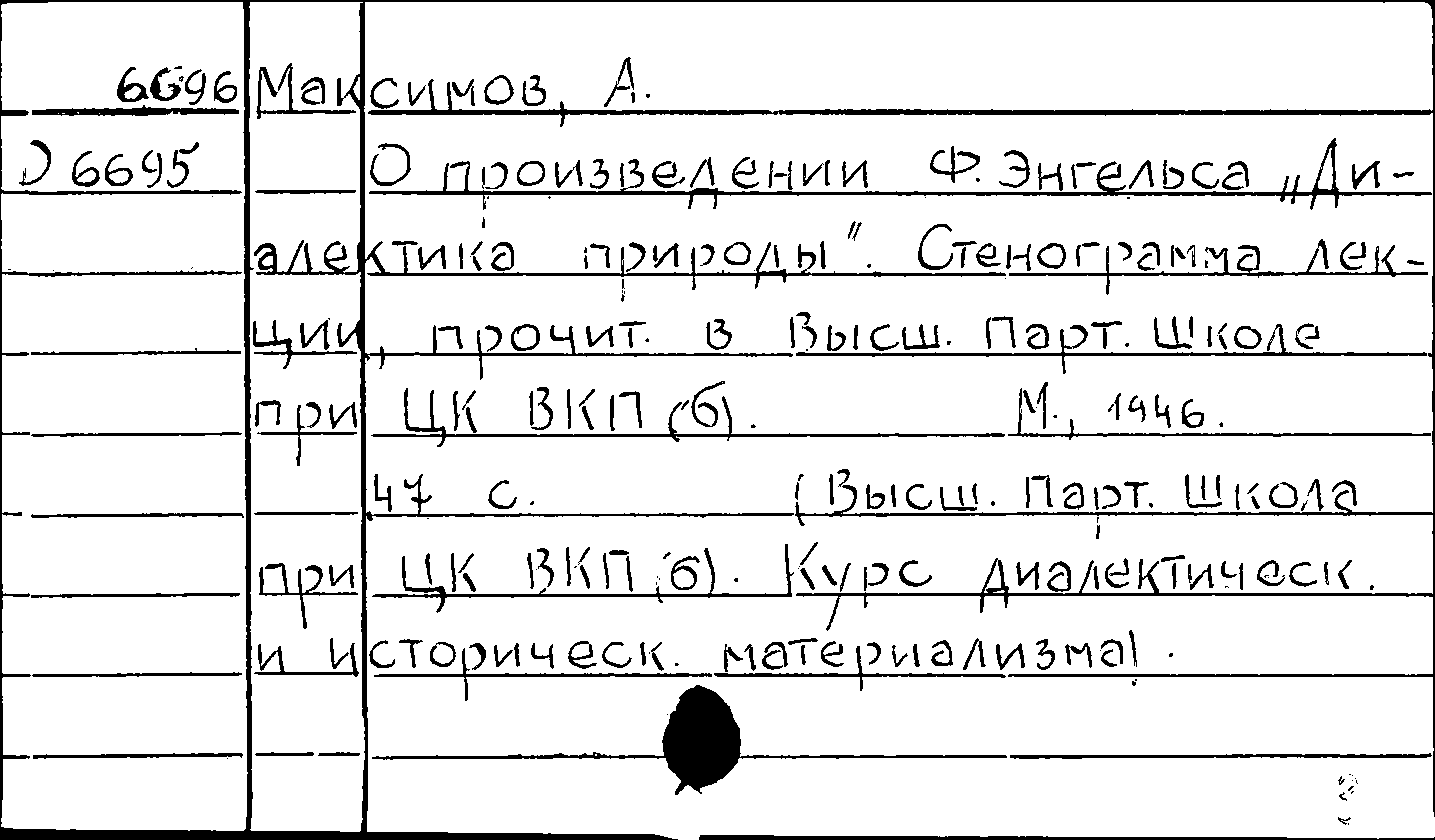 6696 Максимов, А.
D 6695 О произведении Ф. Энгельса „Ди-
алектика природы". Стенограмма лек-
ции, прочит. в Высш. Парт. Школе
при ЦК ВКП(б). М., 1946.
47 с. (Высш. Парт. Школа
при ЦК ВКП(б). Курс диалектическ.
и историческ. материализма).